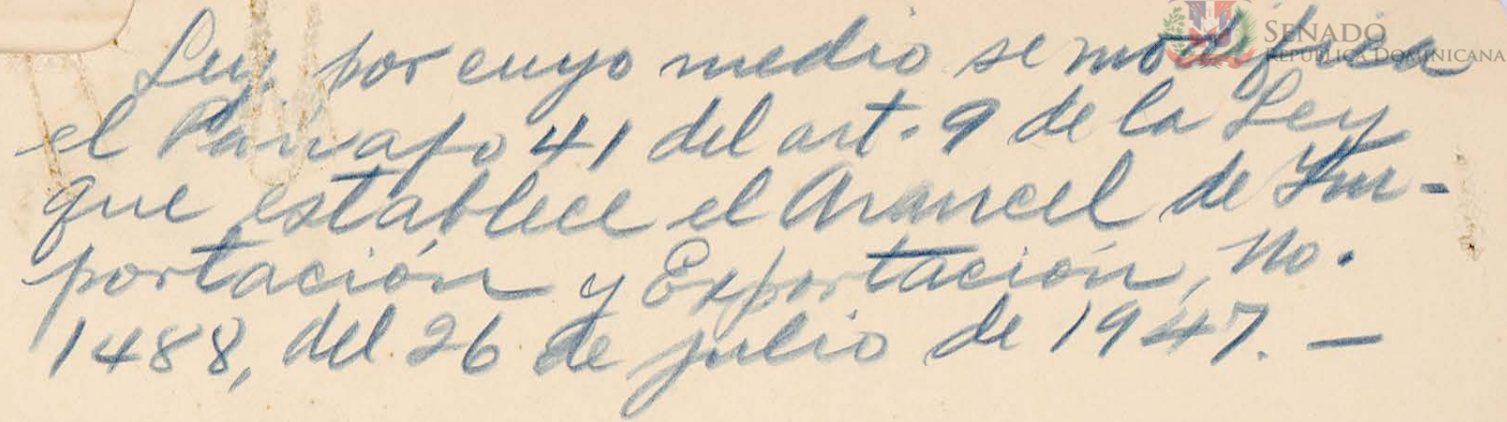 SENADO
REPÚBLICA DOMINICANA
Ley por cuyo medio se modifica
el Párrafo 41 del art. 9 de la Ley
que establece el Arancel de Im-
portación y Exportación, No.
1488, del 26 de julio de 1947. —